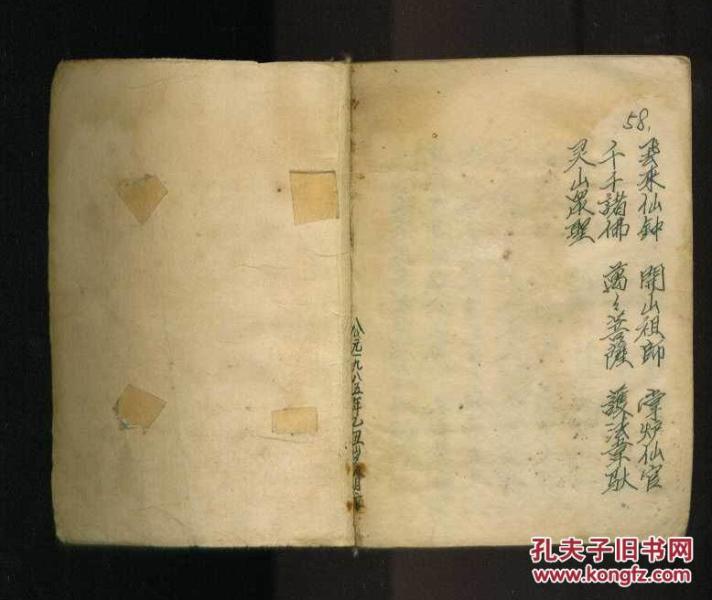 58.
飛来仙钟 開山祖師 掌炉仙官
千千諸佛 萬々菩薩 護法
灵山眾聖
公元一九八五年乙丑岁
孔夫子旧书网
www.kongfz.com